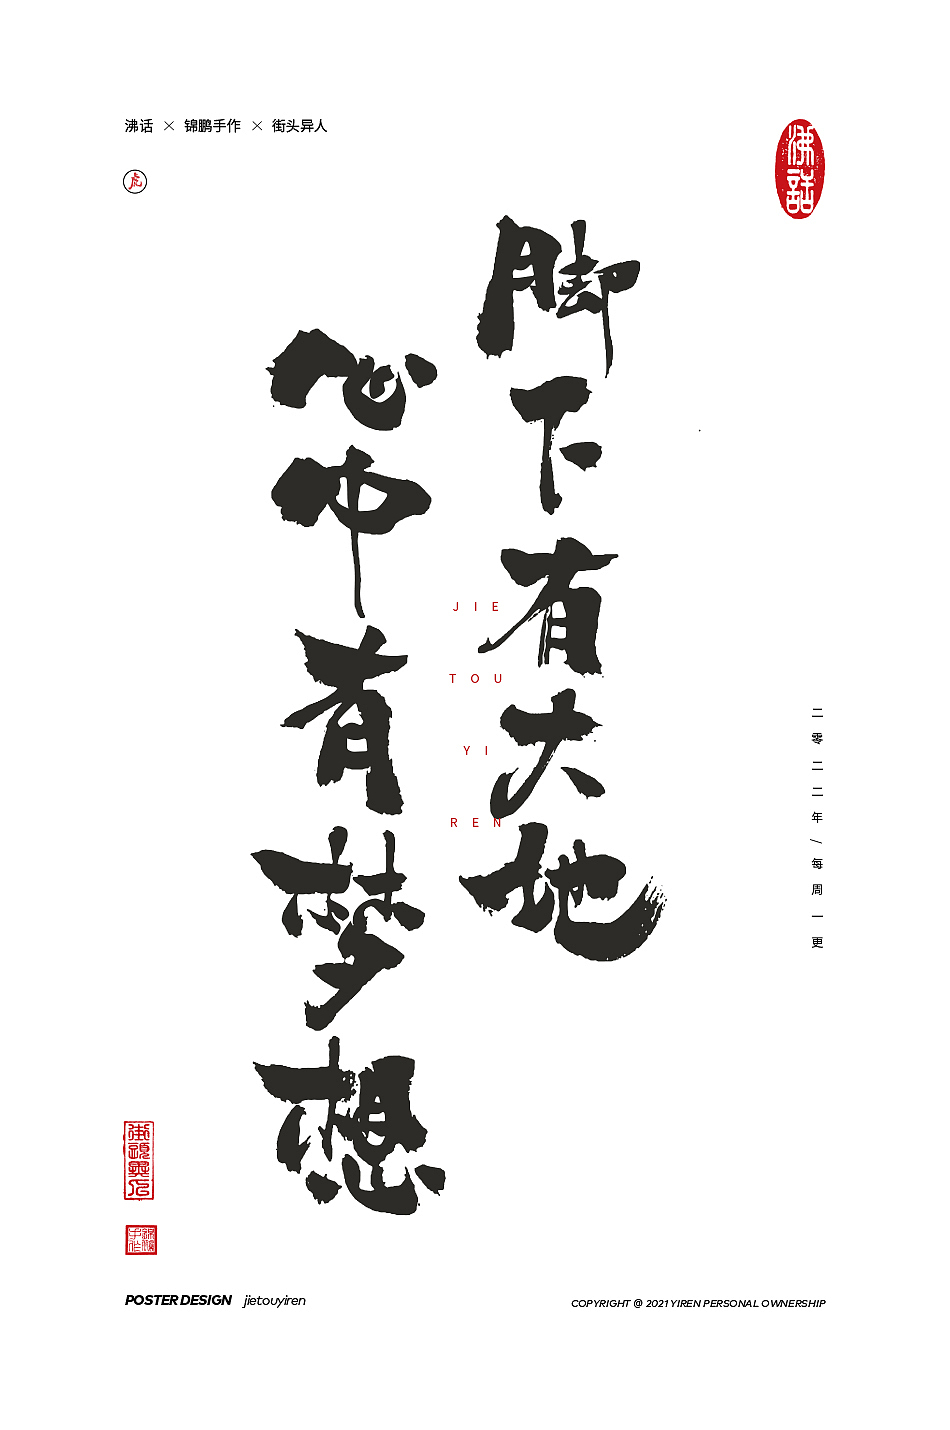 沸话 × 锦鹏手作 × 街头异人
虎
沸話
脚下有大地
心中有梦想
JIE
TOU
YI
REN
二零二二年/每周一更
街頭異人
POSTER DESIGN jietouyiren
COPYRIGHT @ 2021 YIREN PERSONAL OWNERSHIP